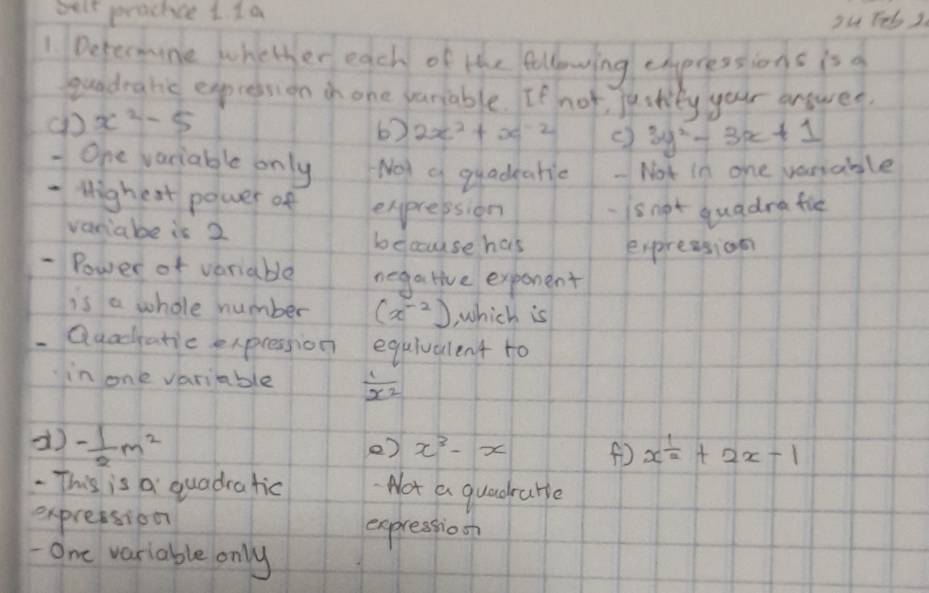 Self practice 1.1a
24 Feb 2
1. Determine whether each of the following expressions is a
quadratic expression in one variable. If not, justify your answer.
a) x² - 5
- One variable only
- Highest power of
variabe is 2
- Power of variable
is a whole number
- Quadratic expression
in one variable
b) 2x² + x⁻²
- Not a quadratic
expression
because has
negative exponent
(x⁻²), which is
equivalent to
1/x²
c) 3y² - 3x + 1
- Not in one variable
- is not quadratic
expression
d) -1/2 m²
- This is a quadratic
expression
- One variable only
e) x³ - x
- Not a quadratic
expression
f) x^(1/2) + 2x - 1